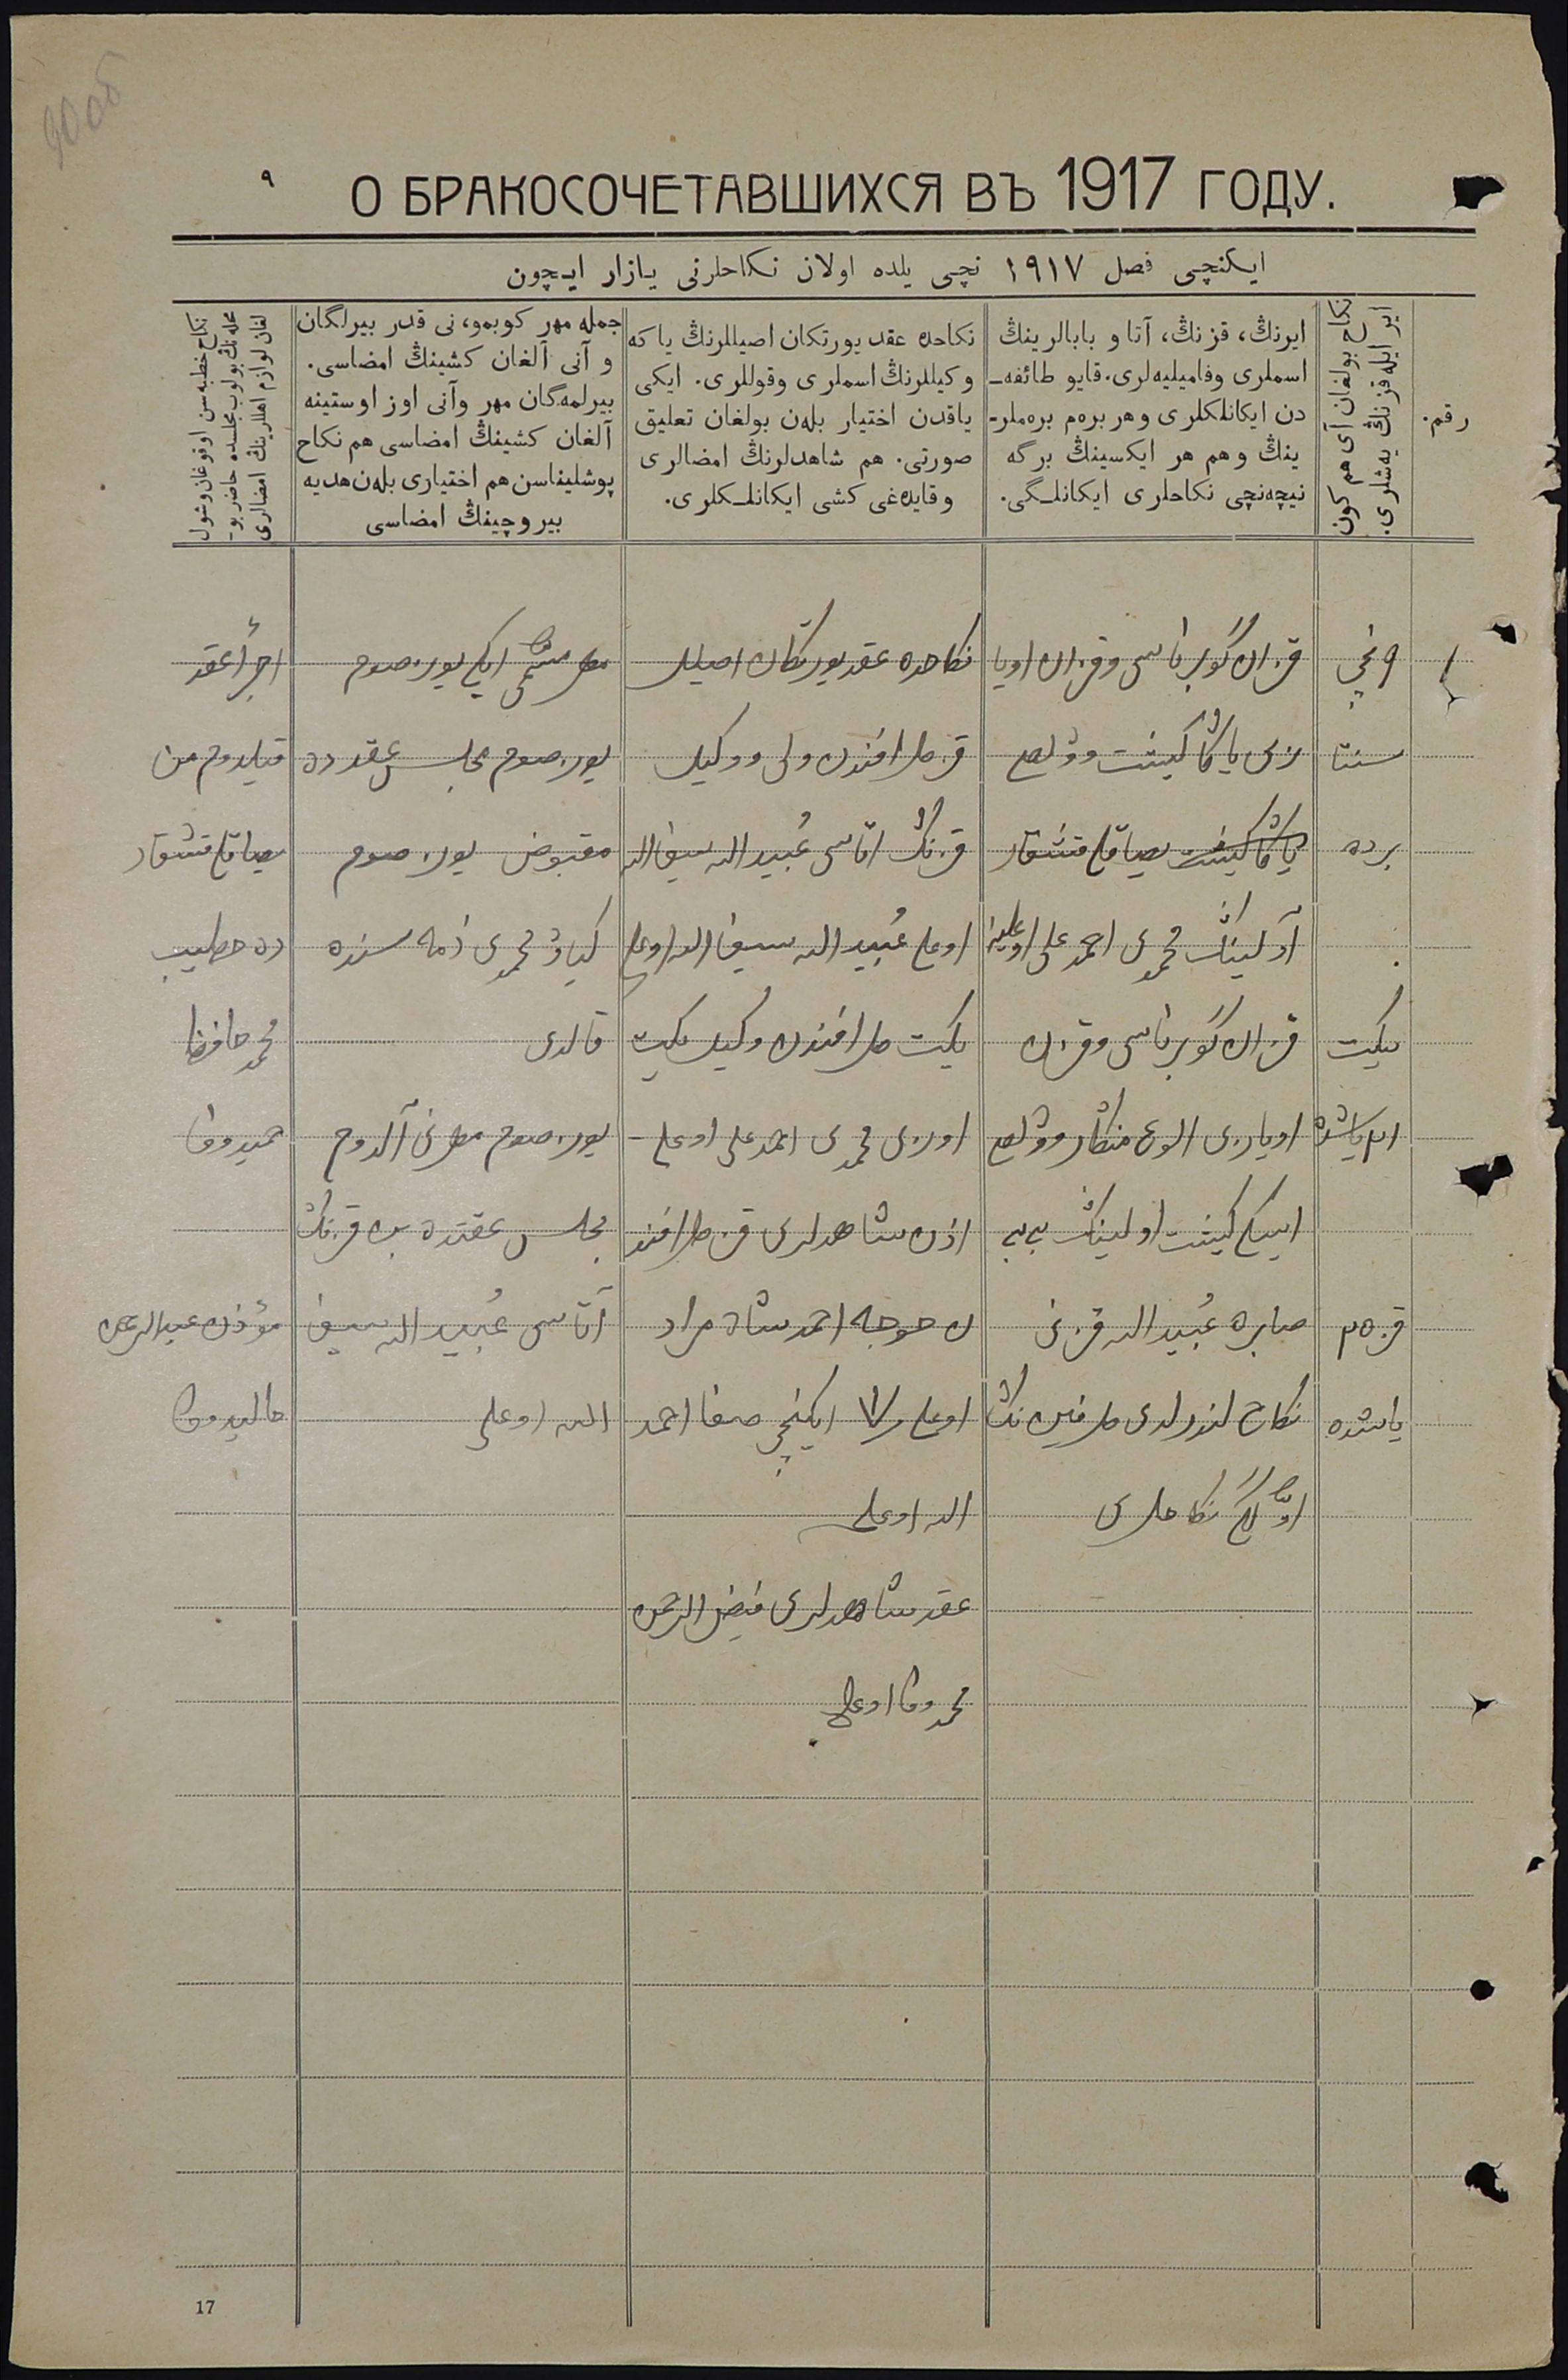 90об
٩
О БРАКОСОЧЕТАВШИХСЯ ВЪ 1917 ГОДУ.
ایکنچی فصل ١٩١٧ نچی یلده اولان نکاحلرنی یازار ایچون
رقم.
نکاح بولغان آی هم کون
ایر ایله قزنڭ یەشلری.
ایرنڭ، قزنڭ، آتا و بابالرینڭ
اسملری وفامیلیەلری. قایو طائفه‌ـ
دن ایکانلکلری وهر برەم برەملرـ
ینڭ وهم هر ایکسینڭ برگە
نیچەنچی نکاحلری ایکانلـگی.
نکاحدە عقد یورتکان اصیللرنڭ یا کە
وکیللرنڭ اسملری وقوللری. ایکی
یاقدن اختیار بلەن بولغان تعلیق
صورتی. هم شاهدلرنڭ امضالری
وقایدەغی کشی ایکانلـکلری.
جملە مهر کوبمو، نی قدر بیرلگان
و آنی آلغان کشینڭ امضاسی.
بیرلمەگان مهر وآنی اوز اوستینە
آلغان کشینڭ امضاسی هم نکاح
پوشلیناسن هم اختیاری بلەن هدیە
بیروچینڭ امضاسی
نکاح خطبەسن اوقوغان وشول
محلەنڭ بولوب مجلسدە حاضر بوـ
لغان لوازم اهللرینڭ امضالری
١
٩ نچی
سنتا
بردە
یکیت
یاشدە
قز ٢٥
یاشدە
قزان گوبرناسی وقزان اویا
زی
آولینڭ محمدی احمد علی اوغلینە
قزان گوبرناسی وقزان
اویازی
صابرە عُبید الله قزنی
نکاح
اوّلگی نکاحلری
نکاحدە عقد یورتکان اصیللر
قز طرافندن ولی و وکیل
قزنڭ اتاسی عُبید الله سیف الله
اوغلی عُبید الله سیف الله اوغلی
یکیت طرافندن وکیل یکیت
اوزی محمدی احمد علی اوغلی
اذن شاهدلری قز طرافند
ن خوجه احمد شاه مراد
اوغلی ایکنچی صفا احمد
الله اوغلی
عقد شاهدلری فیض الرحمن
محمد وفا اوغلی
مهر مسمّی ایکی یوز صوم
یوز صوم مجلس عقد دە
مقبوض یوز صوم
کیاو محمدی ذمە سندە
قالدی
یوز صوم مهرنی آلدوم
مجلس عقتدە بن قزنڭ
آتاسی عُبید الله سیف
الله اوغلی
اجرأ عقد
قیلدوم من
دە خطیب
محمد حافظ
حمیدوف
مؤذن عبد الرحمن
خالیدوف
17